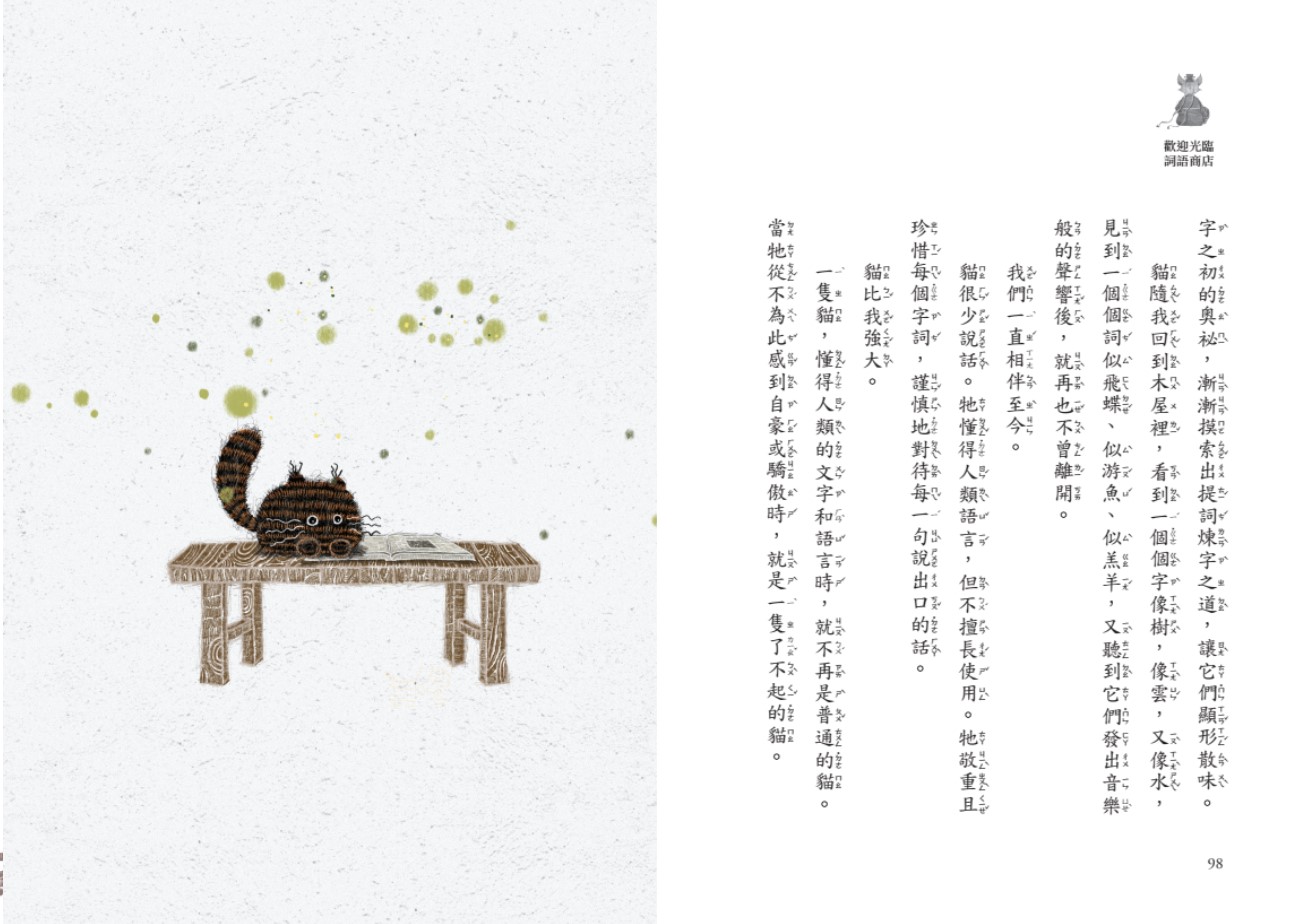 歡迎光臨
詞語商店
字之初的奧祕，漸漸摸索出提詞煉字之道，讓它們顯形散味。
貓隨我回到木屋裡，看到一個個字像樹，像雲，又像水，
見到一個個詞似飛蝶、似游魚、似羔羊，又聽到它們發出音樂
般的聲響後，就再也不曾離開。
我們一直相伴至今。
貓很少說話。牠懂得人類語言，但不擅長使用。牠敬重且
珍惜每個字詞，謹慎地對待每一句說出口的話。
貓比我強大。
一隻貓，懂得人類的文字和語言時，就不再是普通的貓。
當牠從不為此感到自豪或驕傲時，就是一隻了不起的貓。
98